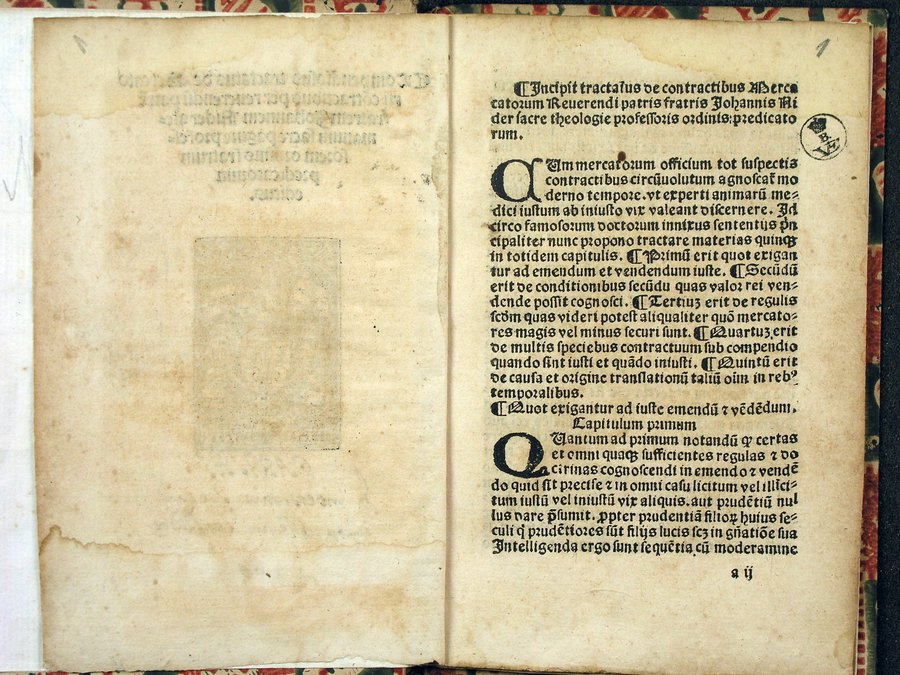 1
¶Incipit tractatus de contractibus Merca
catorum Reuerendi patris fratris Johannis Ni
der sacre theologie professoris ordinis: predicato
rum.
CUm mercatorum officium tot suspectis
contractibus circūuolutum agnoscat̄ mo
derno tempore. vt experti animarū me-
dici iustum ab iniusto vix valeant discernere. Id
circo famosorum doctorum innixus sententijs p̄n
cipaliter nunc propono tractare materias quinqꝫ
in totidem capitulis. ¶Primū erit quot exigan
tur ad emendum et vendendum iuste. ¶Secūdū
erit de conditionibus secūdu quas valor rei ven-
dende possit cognosci. ¶Tertiuꝫ erit de regulis
scd̄m quas videri potest aliqualiter quō mercato-
res magis vel minus securi sunt. ¶Quartuꝫ erit
de multis speciebus contractuum sub compendio
quando sint iusti et quādo iniusti. ¶Quintū erit
de causa et origine translationū taliū oīm in rebꝰ
temporalibus.
¶Quot exigantur ad iuste emendū ⁊ vēdēdum.
Capitulum primum
QUantum ad primum notandū ꝙ certas
et omni quaqꝫ sufficientes regulas ⁊ do
ctrinas cognoscendi in emendo ⁊ vendē
do quid sit precise ⁊ in omni casu licitum vel illici-
tum iustū vel iniustū vix aliquis. aut prudētiū nul
lus dare p̄sumit. ꝓpter prudentiā filioꝝ huius se-
culi q̇ prudētiores sūt filijs lucis scꝫ in gn̄atiōe sua
Intelligenda ergo sunt sequētia cū moderamine
a ij